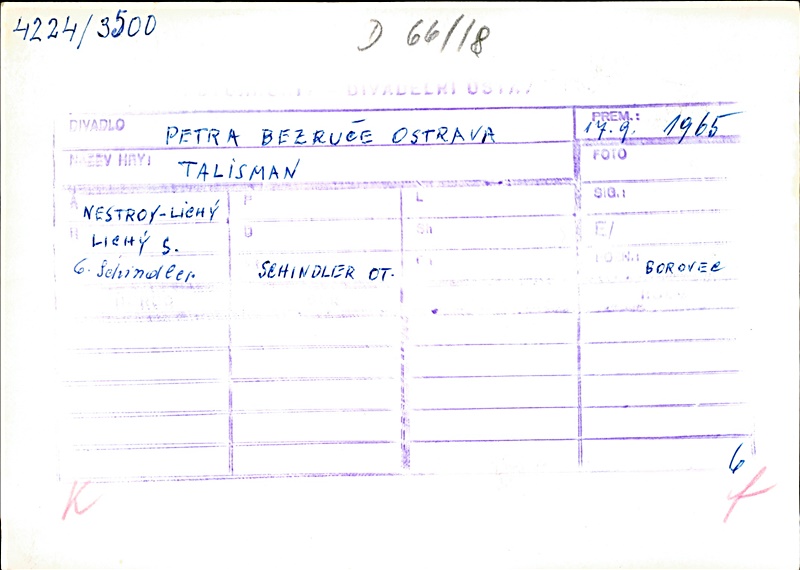 4224/3500
D 66/18
DIVADELNÍ
DIVADLO PETRA BEZRUČE OSTRAVA PREM.: 17.9. 1965
NÁZEV HRY: TALISMAN FOTO
A NESTROY-LICHÝ P L SIG.:
LICHÝ S.
G. Schindler SCHINDLER OT. BOROVEC
6
K